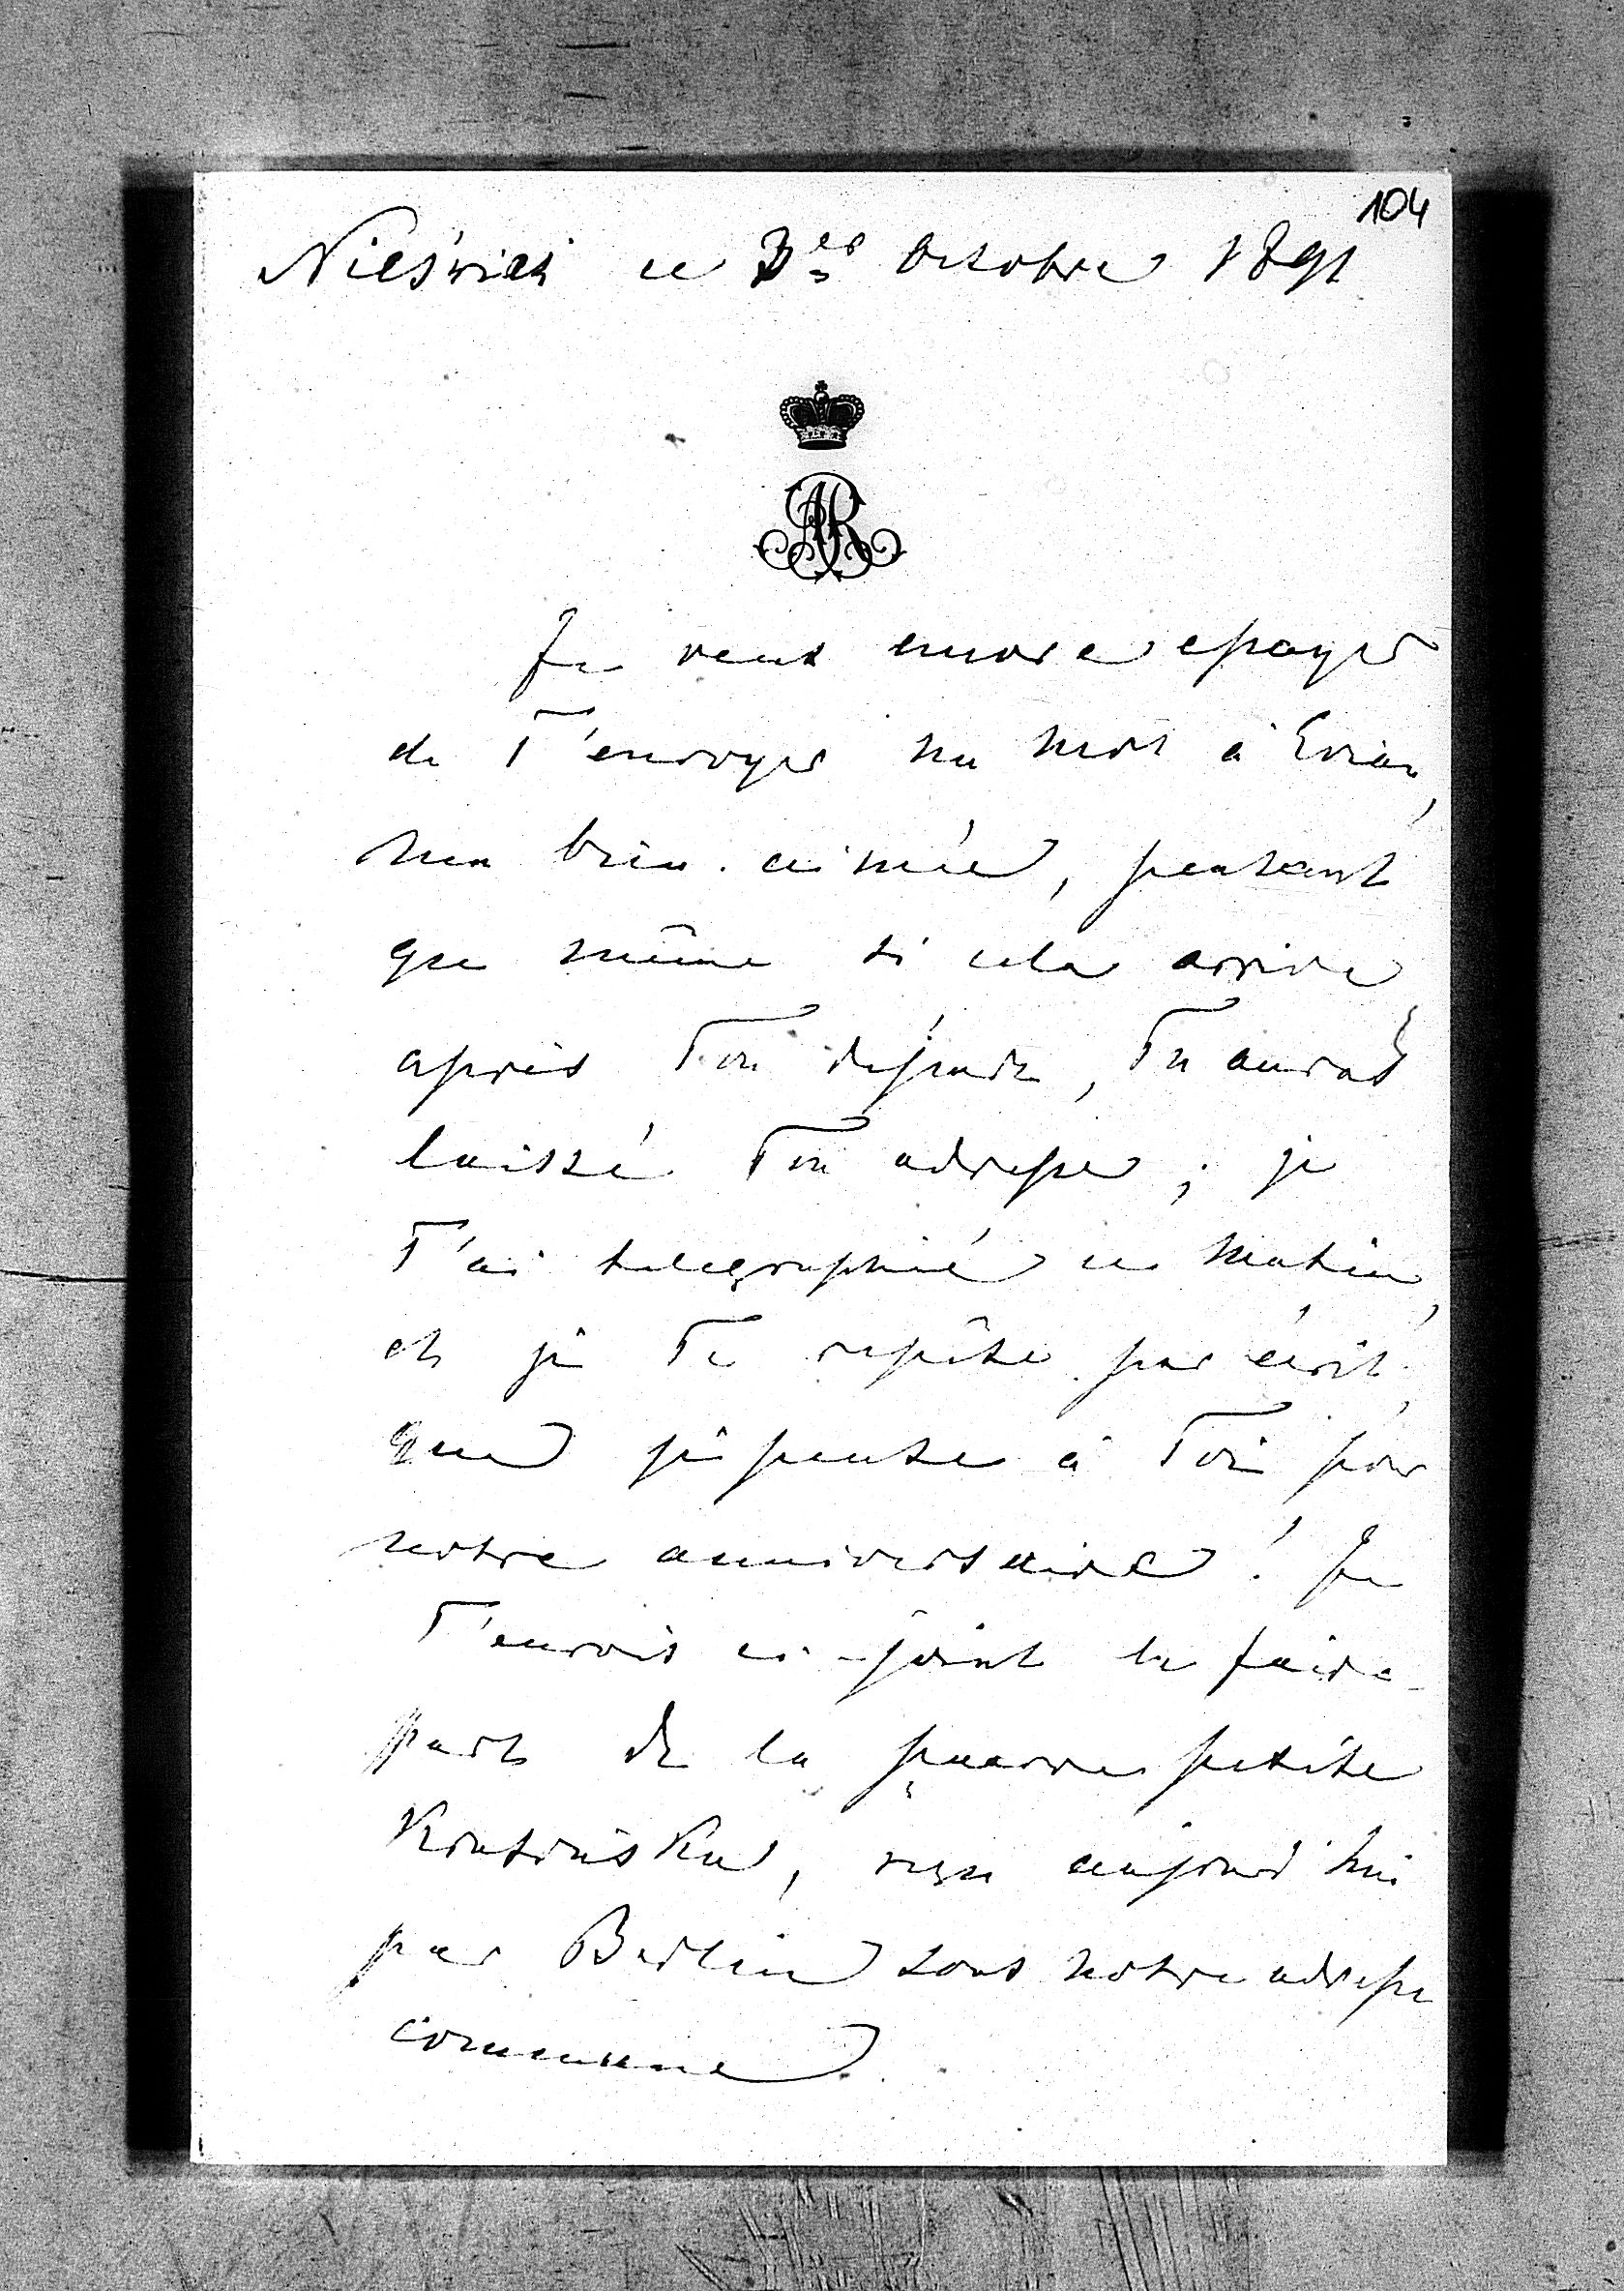 104
Nieśwież ce 3 Octobre 1891
AR
Je veux encore essayer
de T'envoyer un mot à Evian,
ma bien-aimée, pensant
que même si cela arrive
après Ton départ, Tu auras
laissé Ton adresse; je
T'ai telegraphié ce matin,
et je Te repête par écrit,
que je pense à Toi pour
notre anniversaire! Je
T'envois ci-joint le faire-
part de la pauvre petite
reçu aujourd'hui
par Berlin sous notre adresse
commune.